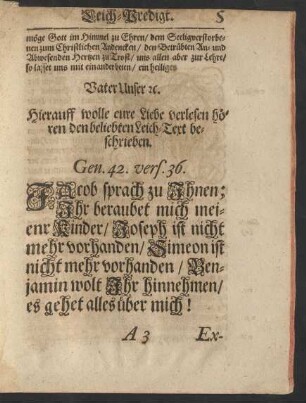 Leich-Predigt. 5
möge Gott im Himmel zu Ehren/ dem Seeligverstorbe-
nen zum Christlichen Andencken/ den Betrübten An- und
Abwesenden Hertzen zu Trost/ uns allen aber zur Lehre/
so lasset uns mit einander beten/ ein heiliges
Vater Unser ꝛc.
Hierauff wolle eure Liebe verlesen hö-
ren den beliebten Leich-Text be-
schrieben.
Gen. 42. vers. 36.
JAcob sprach zu Ihnen;
Ihr beraubet mich mei-
enr Kinder/ Joseph ist nicht
mehr vorhanden/ Simeon ist
nicht mehr vorhanden/ Ben-
jamin wolt Ihr hinnehmen/
es gehet alles über mich!
A 3 Ex-